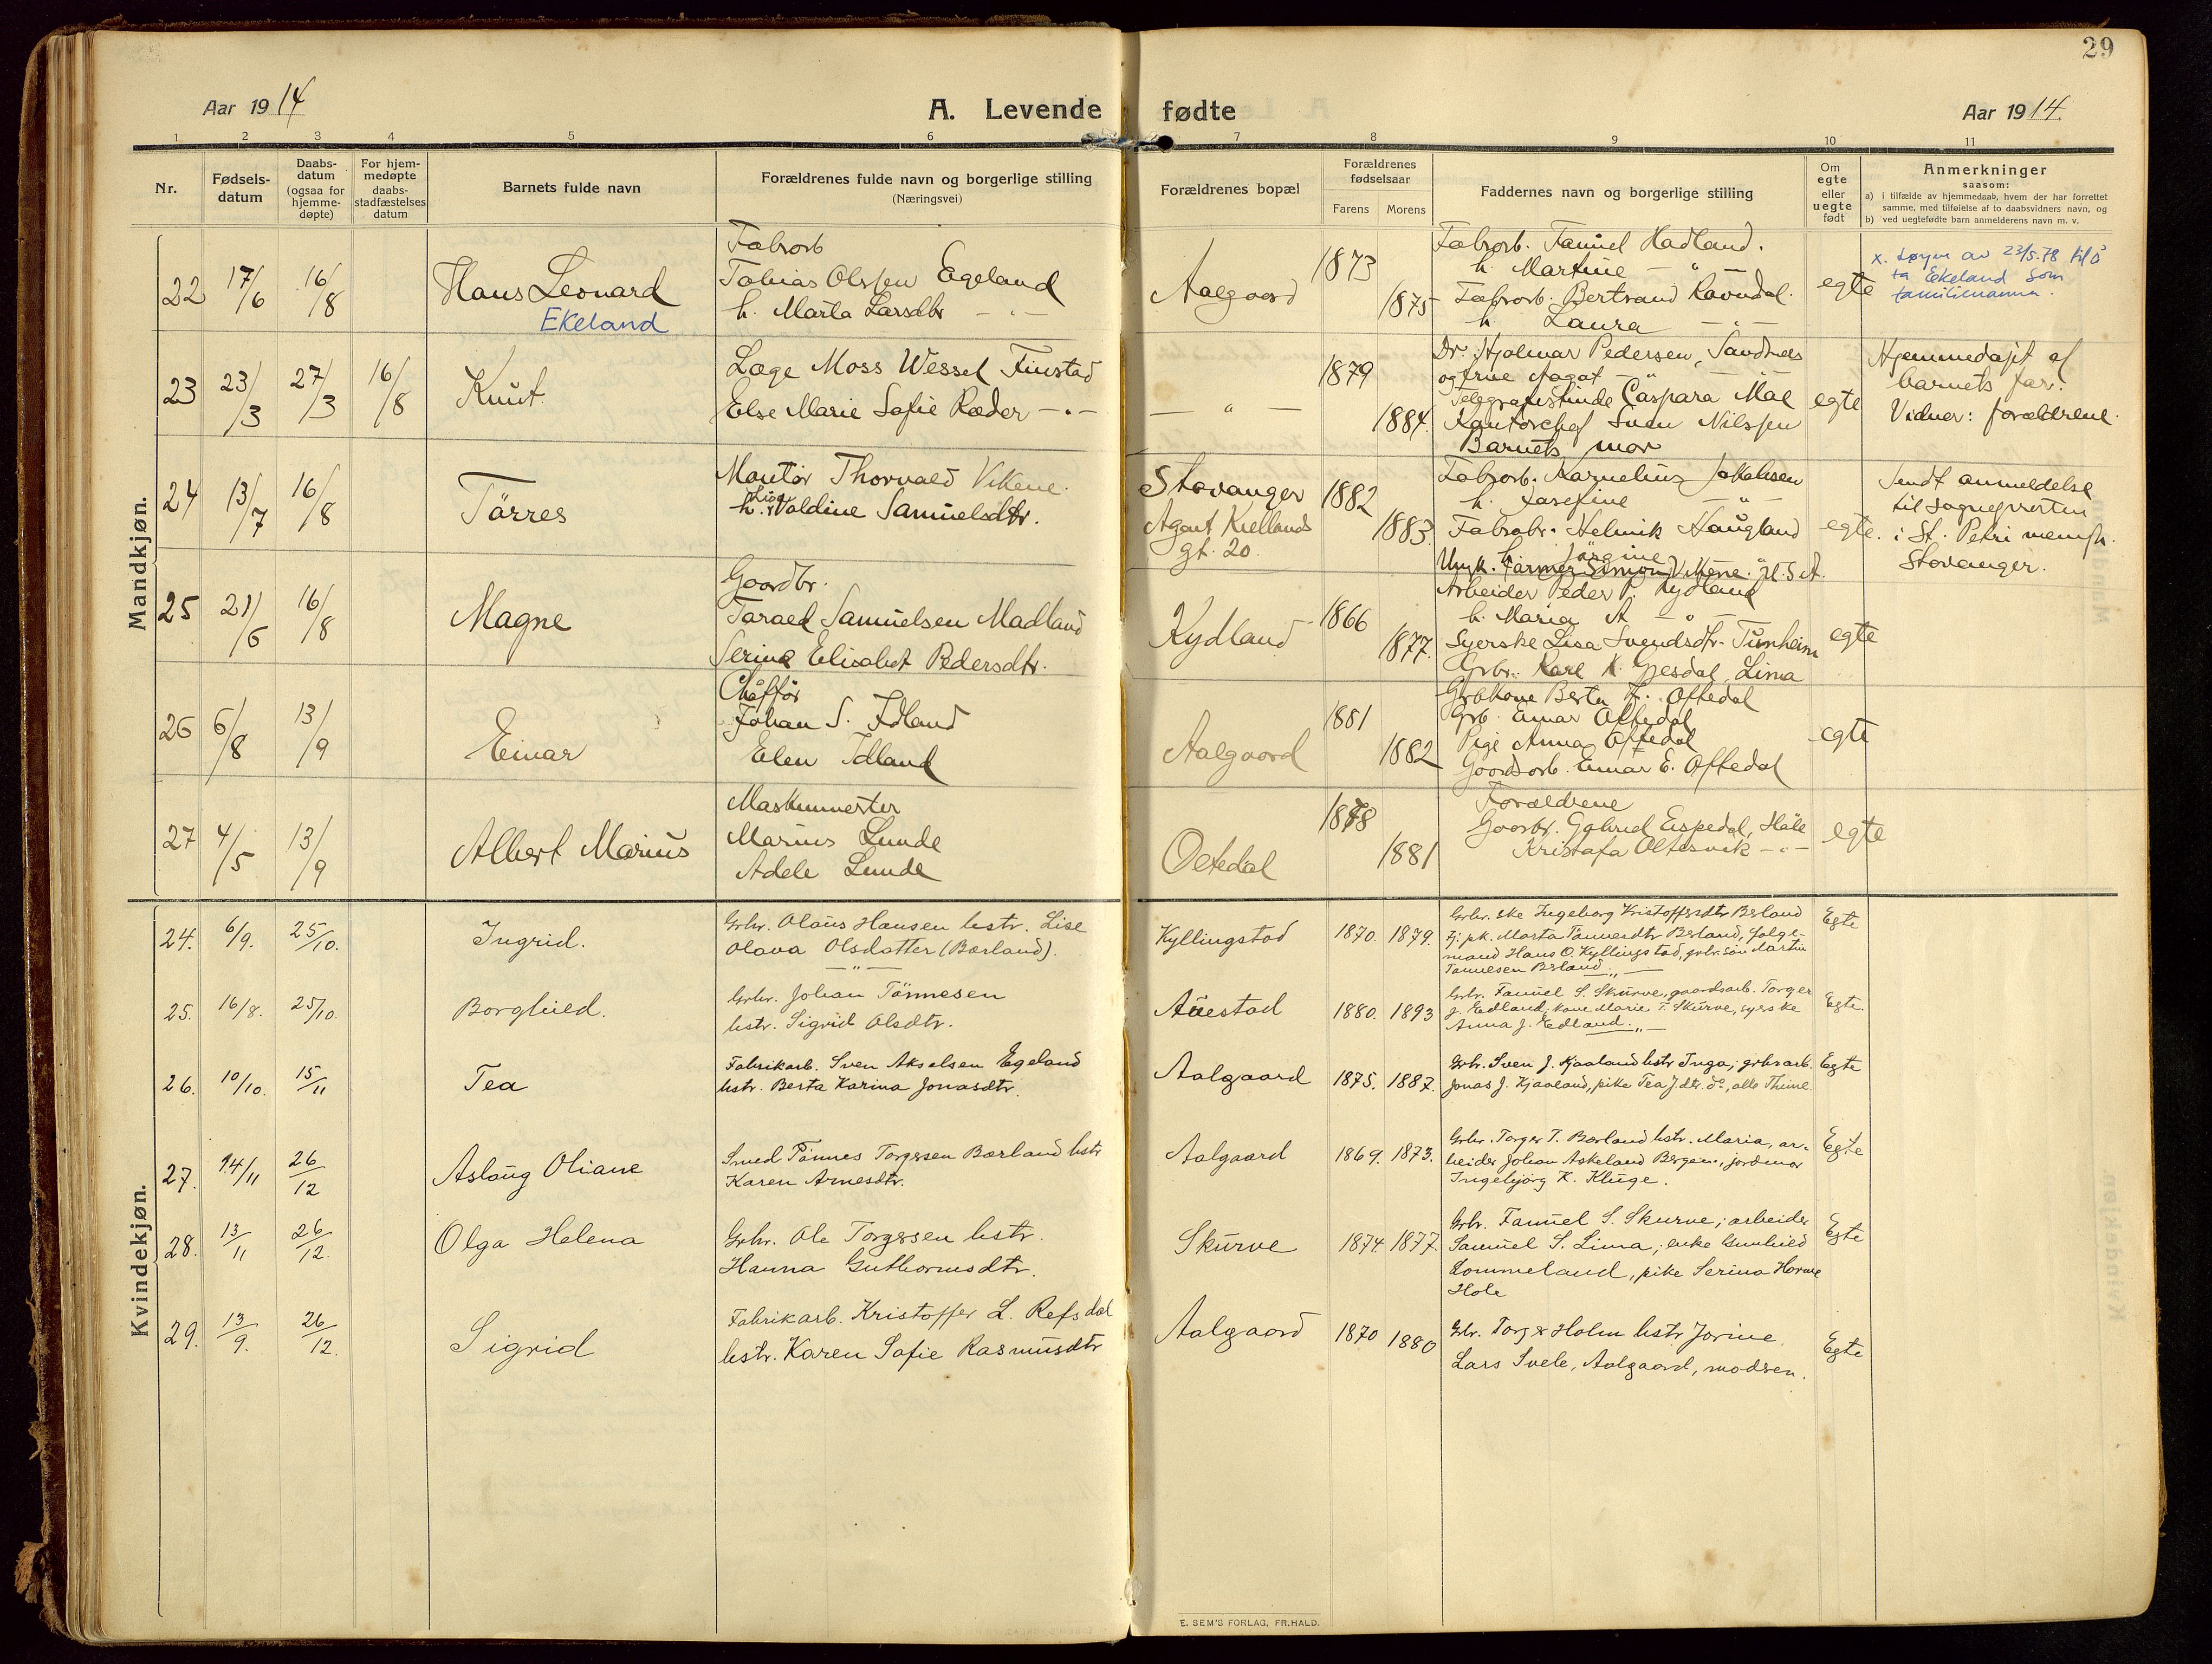 29
Aar 1914
A. Levende fødte
Aar 1914.
1 2 3 4 5 6 7 8 9 10 11
Nr.
Fødsels-
datum
Daabs-
datum
(ogsaa for
hjemme-
døpte)
For hjem-
medøpte
daabs-
stadfæstelses
datum
Barnets fulde navn
Forældrenes fulde navn og borgerlige stilling
(Næringsvei)
Forældrenes bopæl
Forældrenes
fødselsaar
Farens Morens
Faddernes navn og borgerlige stilling
Om
egte
eller
uegte
født
Anmerkninger
saasom:
a) i tilfælde av hjemmedaab, hvem der har forrettet
samme, med tilføielse af to daabsvidners navn, og
b) ved uegtefødte barn anmelderens navn m. v.
Mandkjøn.
22 17/6 16/8
Hans Leonard
Ekeland
Fabrorb
Tobias Olsen Egeland
h. Marta Larsdtr — " —
Aalgaard
1873
1875
Fabrorb. Fanuel Hadland.
h. Martine — " —
Fabrorb. Bertrand Ravndal.
h. Laura — " —
egte
x. løyve av 23/5-78 til å
ta Ekeland som
familienamn.
23 23/3 27/3 16/8
Knut.
Læge Moss Wessel Finstad
Else Marie Sofie Ræder — " —
— " —
1879
1884.
Dr. Hjalmar Pedersen, Sandnes
og frue Aagot — " —
Telegrafistinde Caspara Mæl
Kontorchef Sven Nilssen
Barnets mor
egte
Hjemmedøpt af
barnets far.
Vidner: forældrene.
24 13/7 16/8
Tårres
Montör Thorvald Vikene.
h. Lise Valdine Samuelsdtr.
Stavanger
Agent Kiellands
gt. 20.
1882
1883.
Fabrorb. Kornelius Jakobsen
h. Josefine — " —
Fabrobr. Helmik Haugland
h. Jörgine — " —
Ungk. Farmer Simon Vikene. U.S.A.
egte.
Sendt anmeldelse
til sogneprest
i St. Petri menigh.
Stavanger.
25 21/6 16/8
Magne
Goordbr.
Tarald Samuelsen Madland
Serine Elisabet Pedersdtr.
Kydland
1866
1877.
Arbeider Peder P. Kydland
h. Maria A — " —
Syerske Lisa Svendsdtr. Tunheim
Grbr. Karl K. Gjesdal, Lima
egte
26 6/8 13/9
Einar
Chåffør
Johan S. Idland
Elen Idland
Aalgaard
1881
1882
Grbkone Berta K. Oftedal
Grb. Einar Oftedal
Pige Anna Oftedal
Goordsorb. Einar E. Oftedal
egte
27 4/5 13/9
Albert Marius
Maskinmester
Marius Lunde
Adele Lunde
Oltedal
1878
1881
Forældrene
Goorbr. Gabriel Espedal, Høle
Kristofa Oltesvik — " —
egte
Kvindekjøn.
24. 6/9. 25/10.
Ingrid.
Grbr. Olaus Hansen hstr. Lise
Olava Olsdatter (Bærland).
— " —
Kyllingstad
1870. 1879.
Grbr. eke Ingeborg Kristoffersdtr Berland
tj. pk. Marta Tönnesdtr Berland, følge-
mand Hans O. Kyllingstad, grbr. sön Martin
Tönnesen Berland.
Egte
25. 16/8. 25/10.
Borghild.
Grbr. Johan Tönnesen
hstr. Sigrid Olsdtr.
Auestad
1880. 1893
Grbr. Fanuel S. Skurve, gaardsarb. Torger
J. Kedland, kone Marie F. Skurve, syerske
Anna J. Kedland.
Egte.
26. 10/10. 15/11
Tea
Fabrikarb. Sven Akselsen Egeland
hstr. Berta Karina Jonasdtr.
Aalgaard
1875. 1887.
Grbr. Sven J. Kjaaland hstr Inga, grbrsarb.
Jonas J. Kjaaland, pike Tea J.dtr. do., alle Thime
Egte
27. 14/11 26/12
Aslaug Oliane
Smed Tönnes Torgersen Bærland hstr
Karen Arnesdtr.
Aalgaard
1869. 1873.
Grbr. Torger T. Bærland hstr. Maria, ar-
beider Johan Askeland Bergen, jordmor
Ingebjörg K. Kluge.
Egte
28. 13/11 26/12.
Olga Helena
Grbr. Ole Torgersen hstr.
Hanna Guthormsdtr.
Skurve
1874 1877.
Grbr. Fanuel S. Skurve; arbeider
Samuel S. Lima; enke Gunhild
Lommeland, pike Serina Horve
Hole
Egte
29. 13/9. 26/12.
Sigrid
Fabrikarb. Kristoffer L. Refsdal
hstr. Karen Sofie Rasmusdtr
Aalgaard
1870 1880
Grbr. Torger Holm hstr Jorine,
Lars Svele, Aalgaard, modren.
Egte
E. SEM'S FORLAG, FR.HALD.